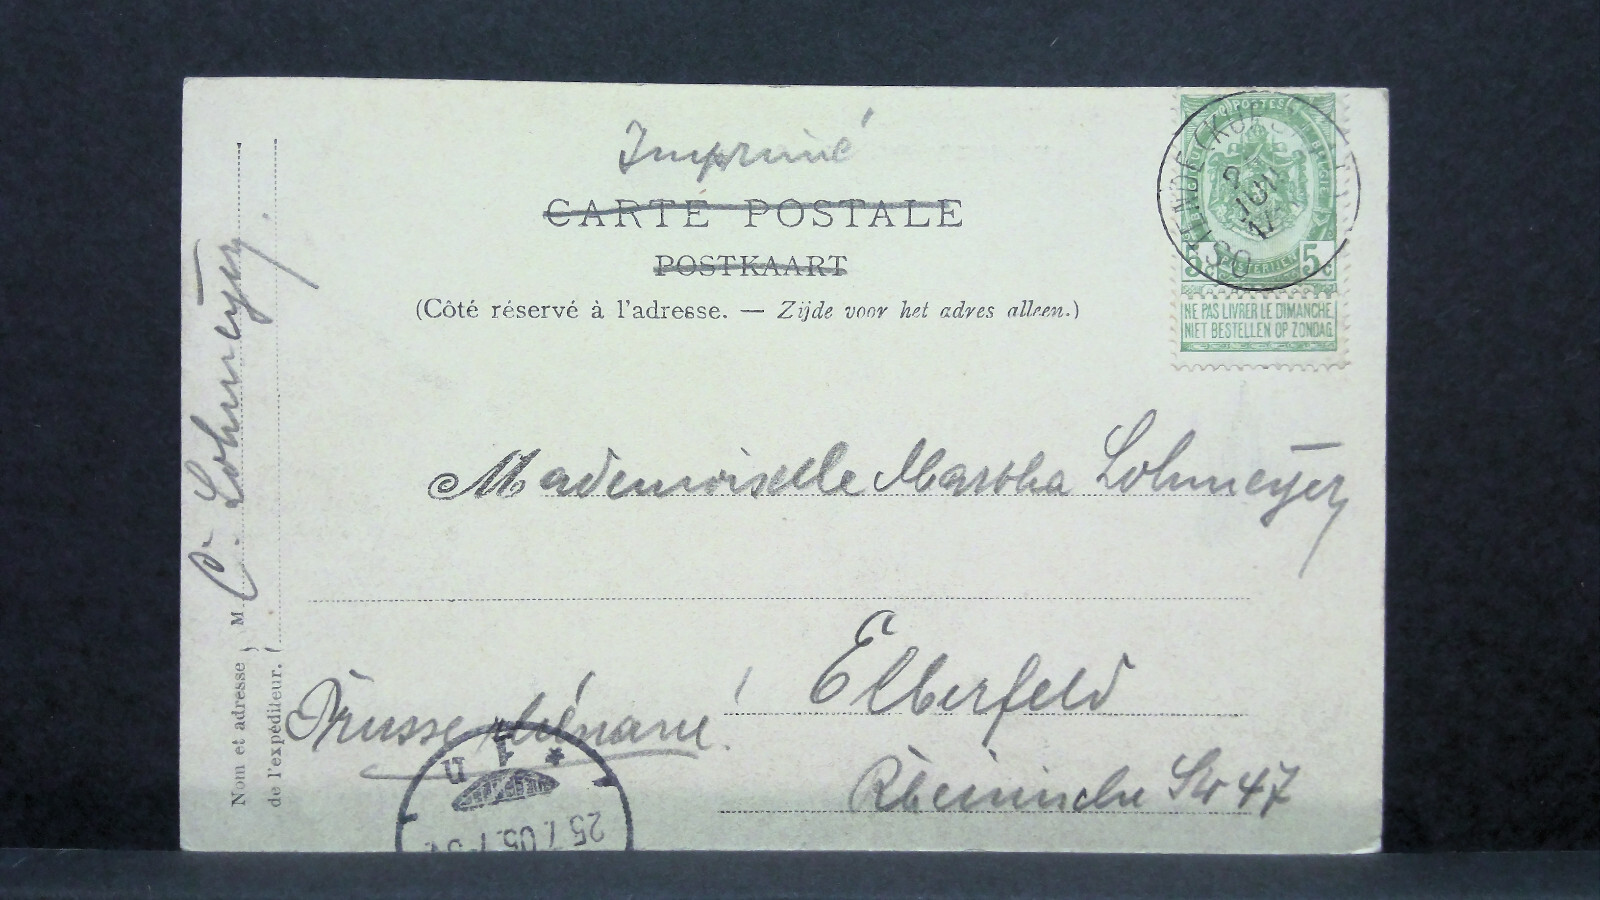 Imprimé
CARTE POSTALE
POSTKAART
(Côté réservé à l'adresse. — Zijde voor het adres alleen.)
POSTES
5c 5c
NE PAS LIVRER LE DIMANCHE
NIET BESTELLEN OP ZONDAG
JUIL
Mademoiselle Martha Lohmeyer
Elberfeld
Rheinische Str 47
Prusse rhénane!
Nom et adresse de l'expéditeur. M C. Lohmeyer,
* 1 n
25.7.05.